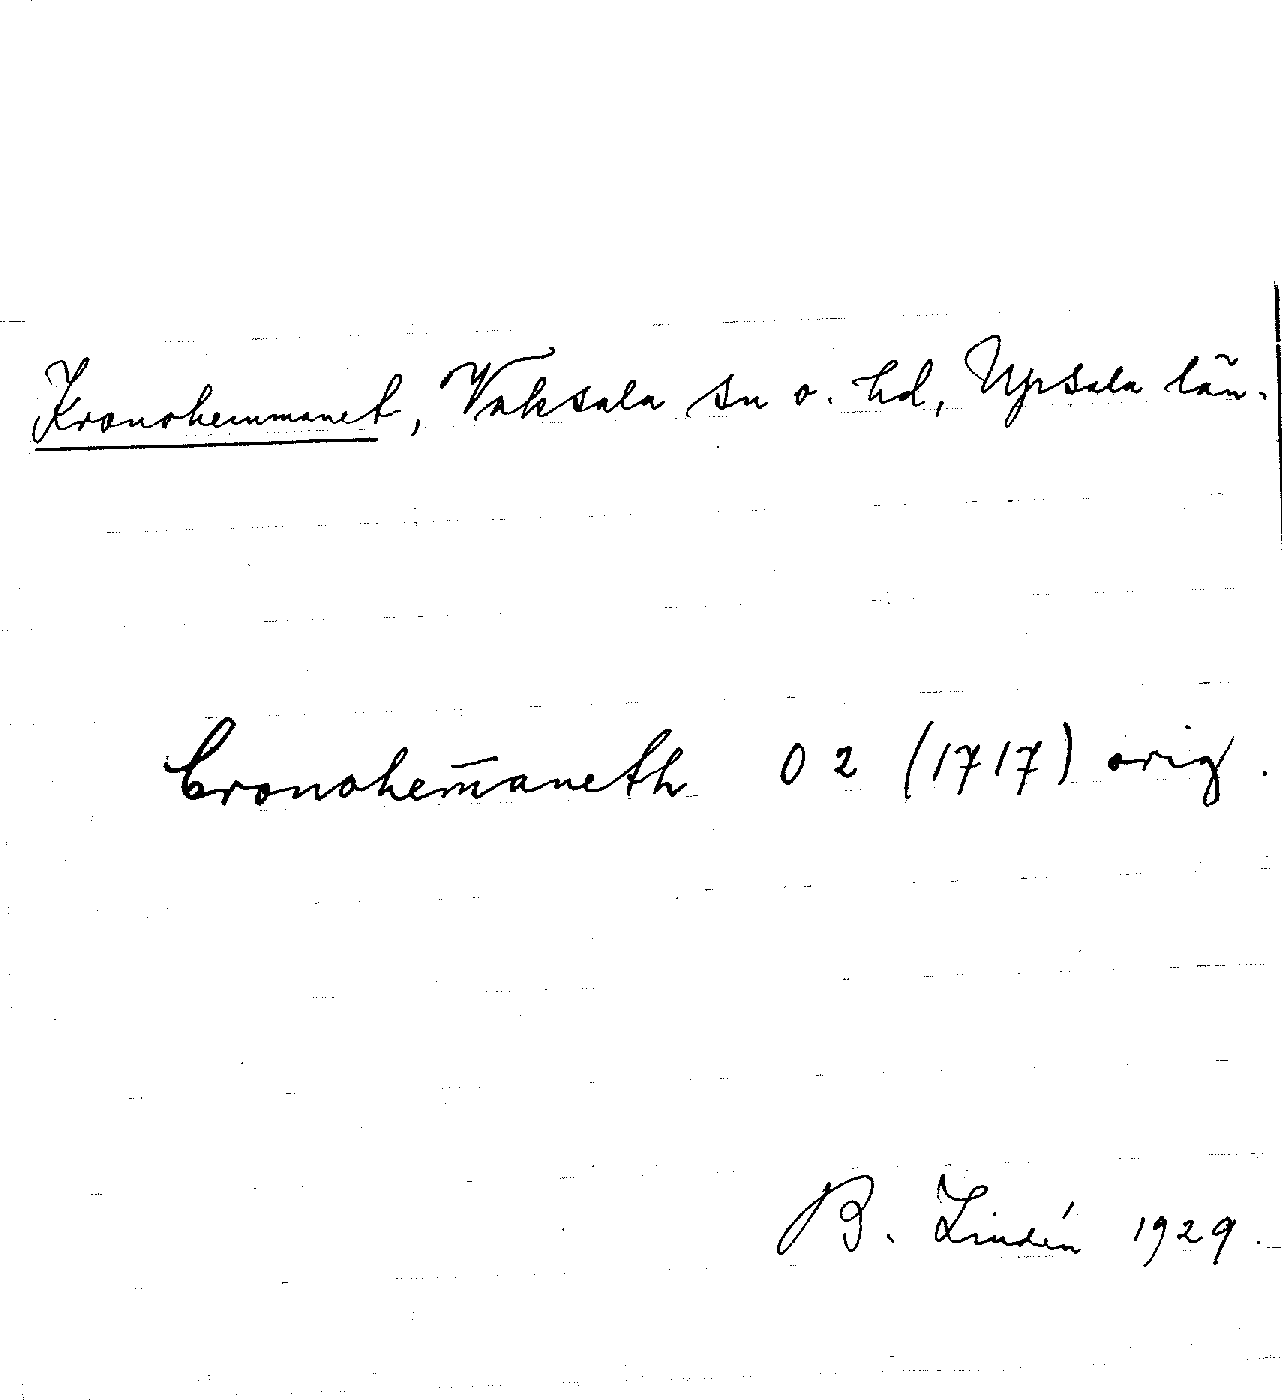 Kronohemmanet, Vaksala sn o. hd, Upsala län.
Cronohem̄aneth 02 (1717) orig.
B. Lindén 1929.